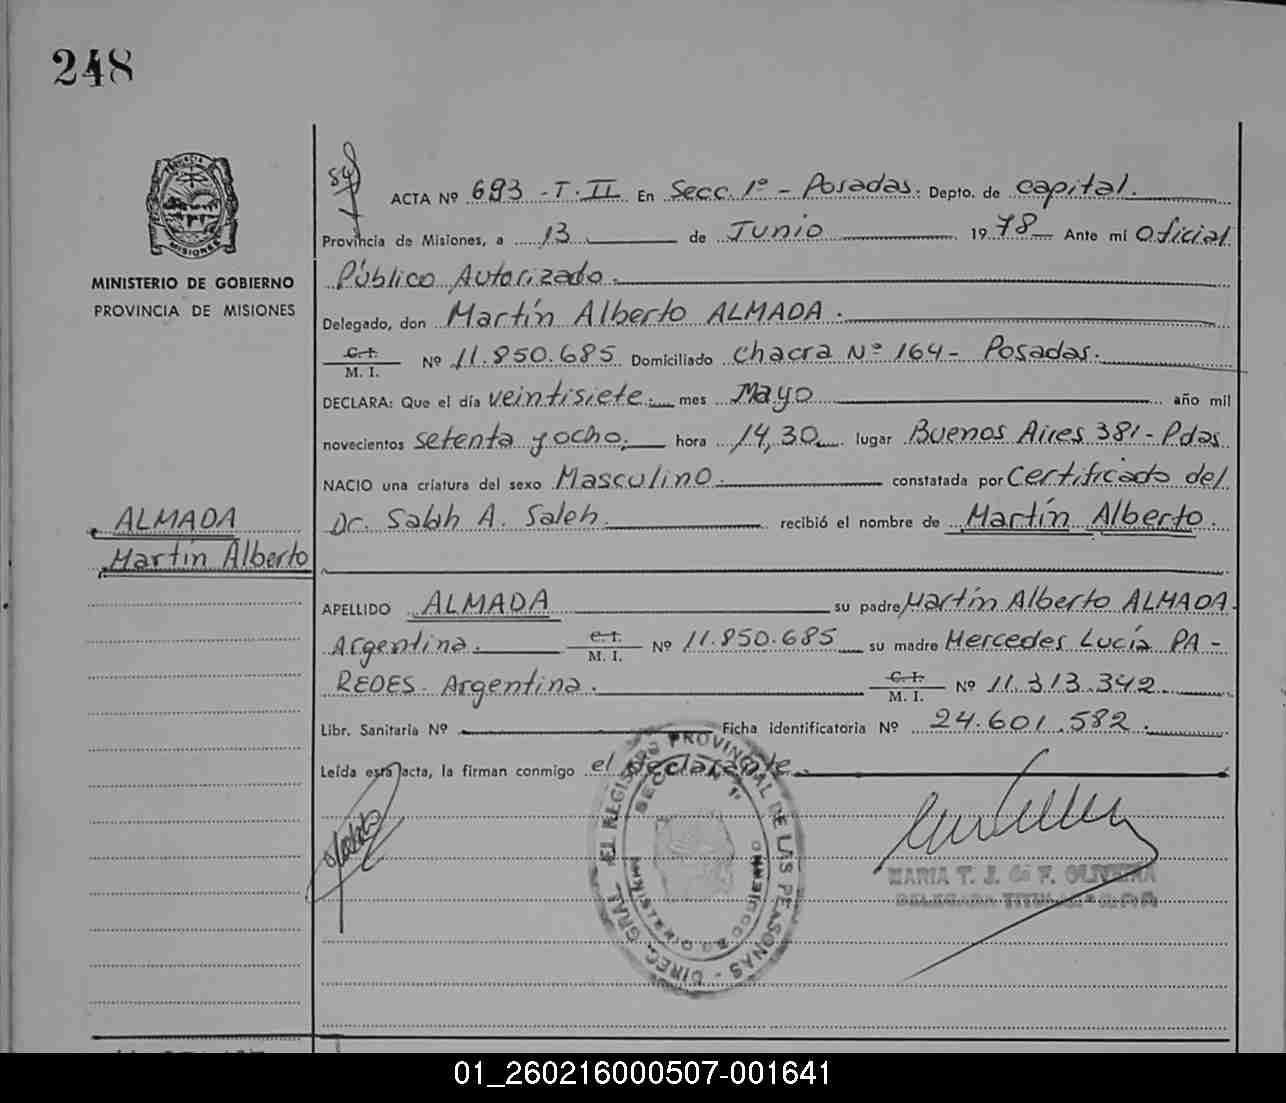 248
ACTA Nº 693 - T. II En Secc. 1º - Posadas. Depto. de capital.
Provincia de Misiones, a 13 de Junio 1978 Ante mí Oficial
Público Autorizado.
MINISTERIO DE GOBIERNO
PROVINCIA DE MISIONES
Delegado, don Martín Alberto ALMADA.
C. I.
M. I.
Nº 11.850.685 Domiciliado Chacra Nº 164 - Posadas.
DECLARA: Que el día veintisiete. mes Mayo año mil
novecientos setenta y ocho, hora 14,30 lugar Buenos Aires 381 - Pdas
NACIO una criatura del sexo Masculino. constatada por Certificado del
Dr. Salah A. Saleh. recibió el nombre de Martín Alberto.
ALMADA
Martín Alberto
APELLIDO ALMADA su padre Martín Alberto ALMADA.
Argentina. C. I. M. I. Nº 11.850.685 su madre Mercedes Lucía PA-
REDES. Argentina. C. I. M. I. Nº 11.313.342
Libr. Sanitaria Nº Ficha identificatoria Nº 24.601.582.
Leída esta acta, la firman conmigo el declarante.
DIREC. GRAL. DEL REGISTRO PROVINCIAL DE LAS PERSONAS
MINISTERIO DE GOBIERNO
MARIA T. J. de F. OLIVEIRA
DELEGADA TITULAR
01_260216000507-001641